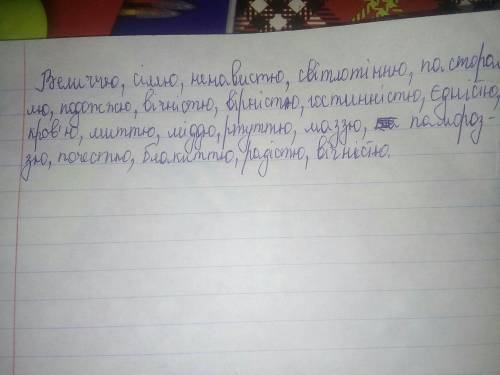 Величчю, сіллю, ненавистю, світлотінню, пасторал
лю, подорожжю, вічністю, вірністю, гостинністю, Єдністю,
кров'ю, миттю, міддю, ртуттю, маззю, паморо-
ззю, почестю, блакиттю, радістю, вічністю.